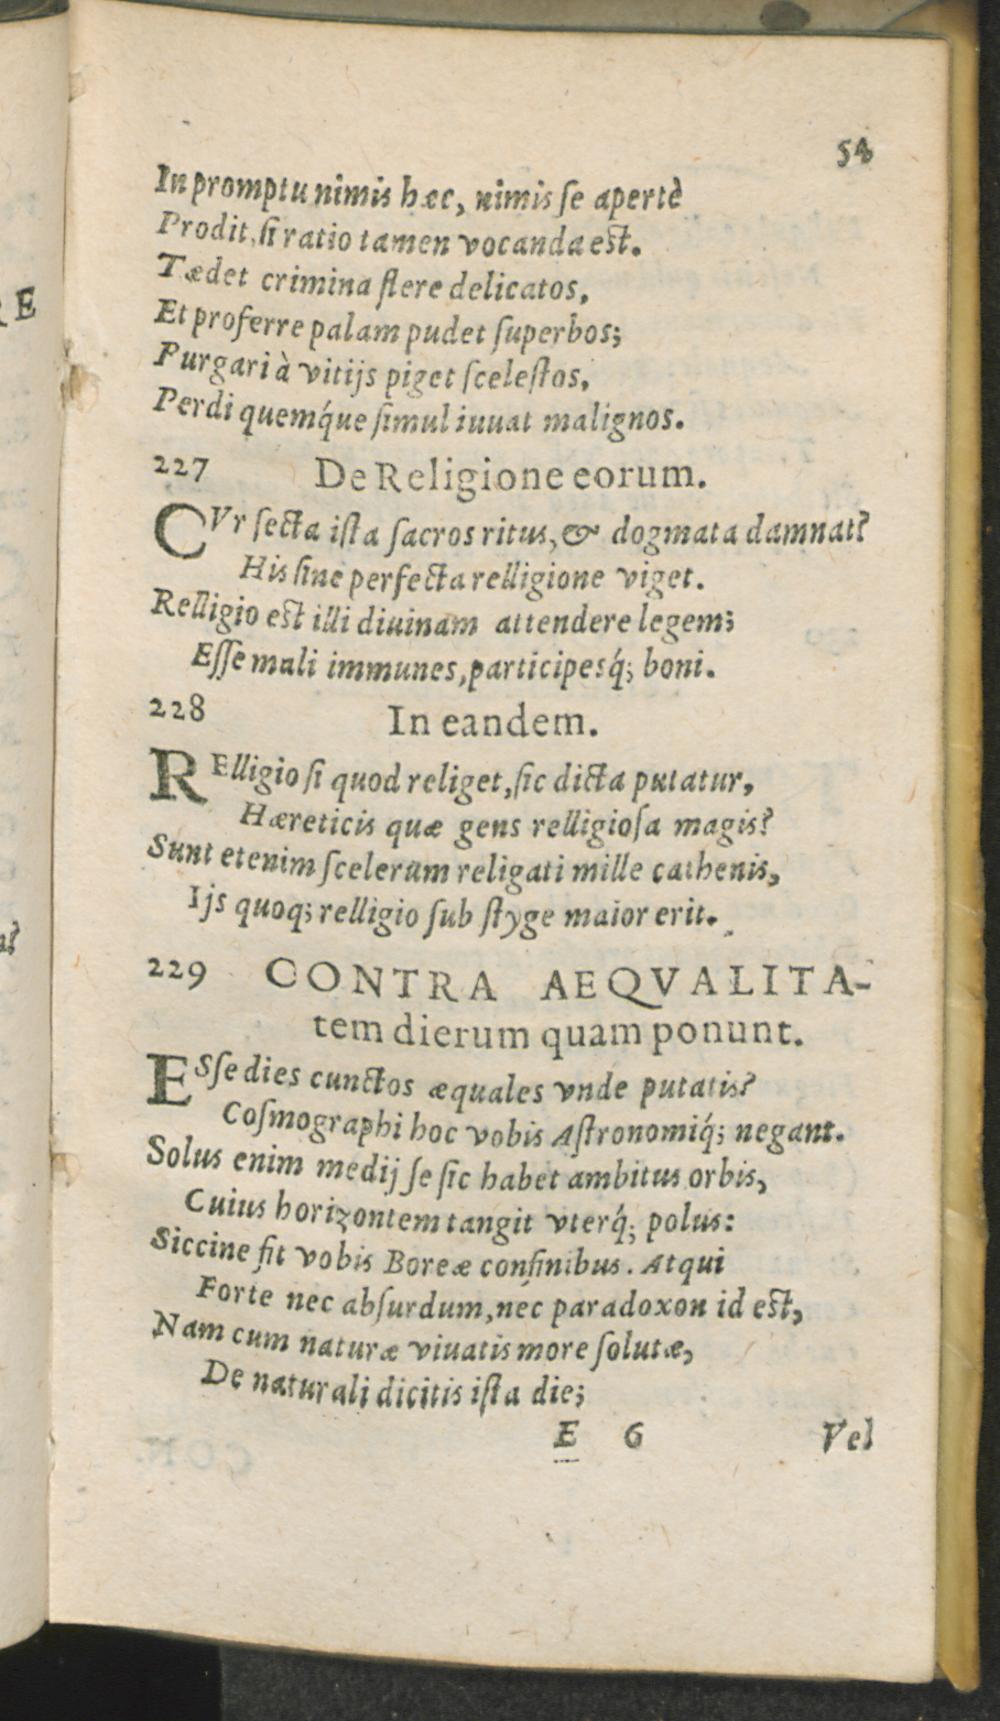 54
In promptu nimis hæc, nimis ſe apertè
Prodit, ſi ratio tamen vocanda est.
Tædet crimina flere delicatos,
Et proferre palam pudet ſuperbos;
Purgari à vitijs piget ſceleſtos,
Perdi quemq́ue ſimul iuuat malignos.
227 De Religione eorum.
CVr ſecta iſta ſacros ritus, & dogmata damnat?
His ſine perfecta relligione viget.
Relligio est illi diuinam attendere legem;
Eſſe mali immunes, participesq́; boni.
228 In eandem.
RElligio ſi quod religet, ſic dicta putatur,
Hæreticis quæ gens relligioſa magis?
Sunt etenim ſcelerum religati mille cathenis,
Ijs quoq; relligio ſub ſtyge maior erit.
229 CONTRA AEQVALITA-
tem dierum quam ponunt.
ESſe dies cunctos æquales vnde putatis?
Coſmographi hoc vobis Aſtronomiq́; negant.
Solus enim medij ſe ſic habet ambitus orbis,
Cuius horizontem tangit vterq́; polus:
Siccine fit vobis Boreæ confinibus. Atqui
Forte nec abſurdum, nec paradoxon id est,
Nam cum naturæ viuatis more ſolutæ,
De naturali dicitis iſta die;
E 6 Vel
RE
a?